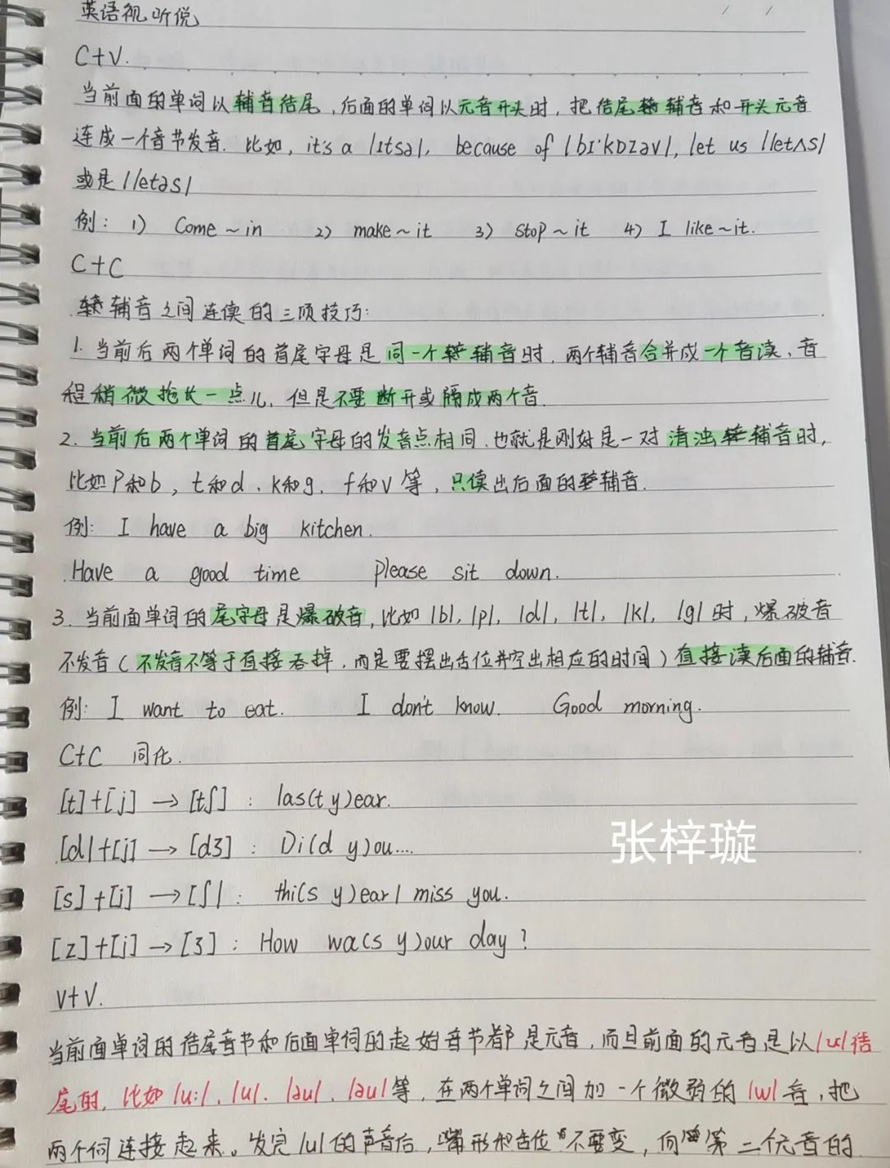 英语视听说
C+V.
当前面的单词以辅音结尾,后面的单词以元音开头时,把结尾辅音和开头元音
连成一个音节发音.比如,it's a /ɪtsə/, because of /bɪ'kɒzəv/, let us /letʌs/
或是/letəs/
例: 1) Come~in 2) make~it 3) stop~it 4) I like~it.
C+C
辅音之间连读的三项技巧:
1. 当前后两个单词的首尾字母是同一个辅音时,两个辅音合并成一个音读,音
程稍微拖长一点儿,但是不要断开或隔成两个音.
2. 当前后两个单词的首尾字母的发音点相同.也就是刚好是一对清浊辅音时,
比如P和b,t和d.k和g.f和v等,只读出后面的辅音.
例: I have a big kitchen.
Have a good time please sit down.
3. 当前面单词的尾字母是爆破音,比如/b/,/p/,/d/,/t/,/k/,/g/时,爆破音
不发音(不发音不等于直接吞掉.而是要摆出舌位并空出相应的时间)直接读后面的辅音.
例: I want to eat. I don't know. Good morning.
C+C 同化.
[t]+[j]→[tʃ]: las(t y)ear.
[d]+[j]→[dʒ]: Di(d y)ou....
[s]+[j]→[ʃ]: thi(s y)ear/ miss you.
[z]+[j]→[ʒ]: How wa(s y)our day?
V+V.
当前面单词的结尾音节和后面单词的起始音节都是元音,而且前面的元音是以/u/结
尾的,比如/u:/,/u/./əu/./au/等,在两个单词之间加一个微弱的/w/音,把
两个词连接起来。发完/u/的声音后,嘴形和舌位不要变,向第二个元音的
张梓璇